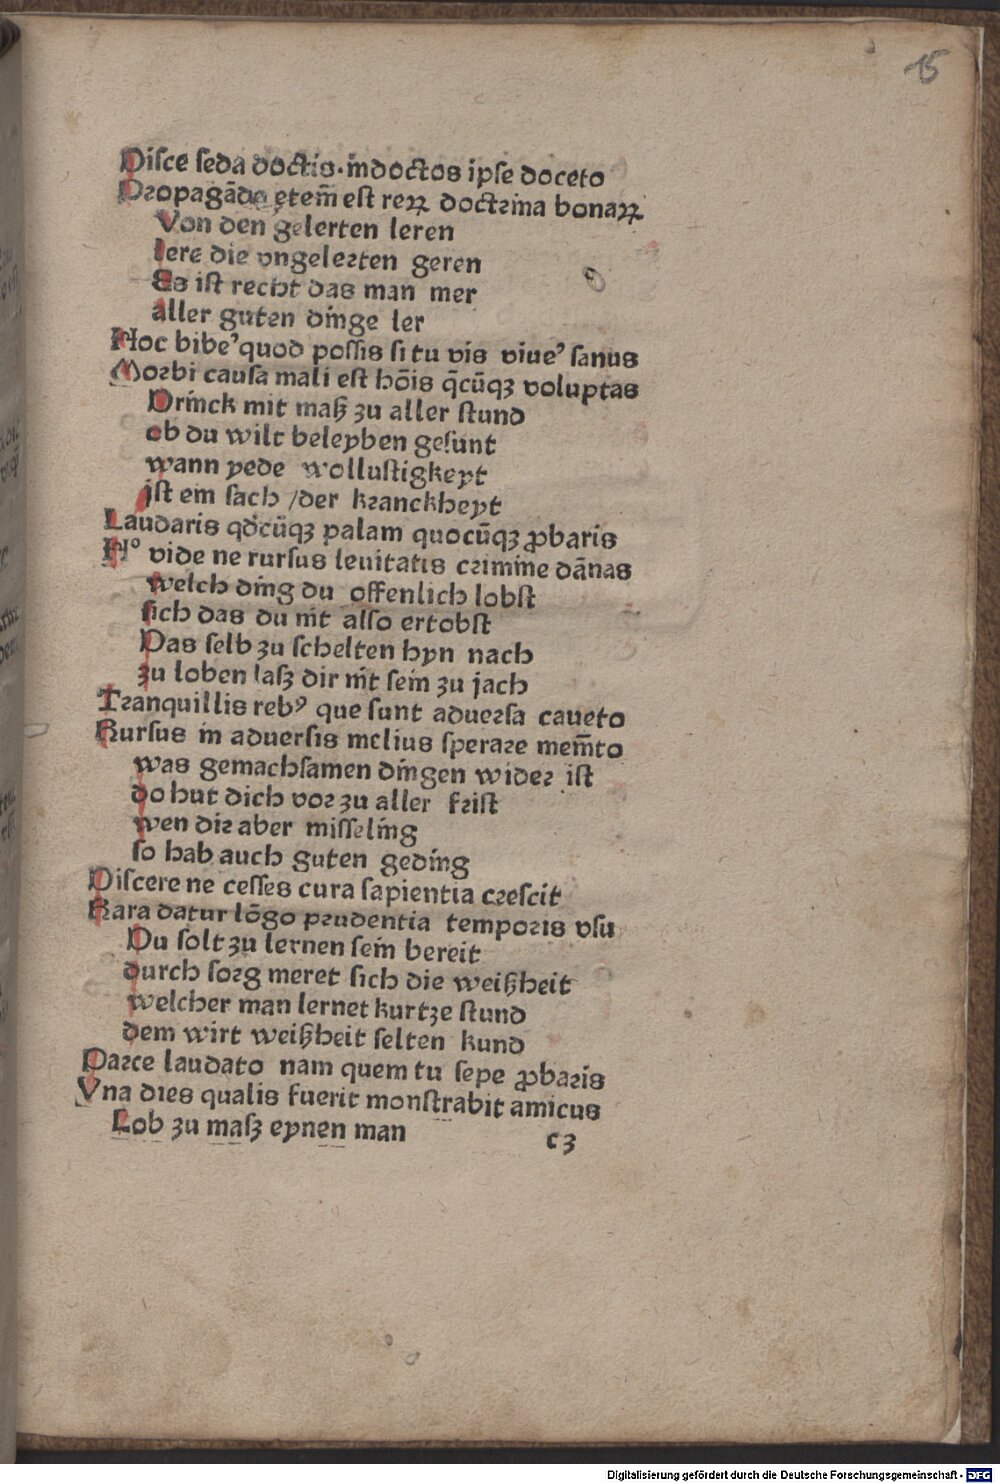 15
Diſce ſeda doctis · indoctos ipſe doceto
Propagãda etem̃ eſt reꝝ doctrina bonaꝝ
Von den gelerten leren
lere die vngelerten geren
Es iſt recht das man mer
aller guten dinge ler
Hoc bibeʾ quod poſſis ſi tu vis viueʾ ſanus
Morbi cauſa mali eſt hõis q̃cũqꝫ voluptas
Drinck mit maß zu aller ſtund
ob du wilt beleyben geſunt
wann yede wolluſtigkeyt
iſt ein ſach /der kranckheyt
Laudaris qd̛cũqꝫ palam quocũqꝫ ꝓbaris
Hº vide ne rurſus leuitatis crimine dãnas
welch ding du offenlich lobſt
ſich das du nit alſo ertobſt
Das ſelb zu ſchelten hyn nach
zu loben laſꝫ dir nit ſein zu jach
Tranquillis rebꝰ que ſunt aduerſa caueto
Rurſus in aduerſis melius ſperare mem̃to
was gemachſamen dingen wider iſt
do hut dich vor zu aller friſt
wen dir aber miſſeling
ſo hab auch guten geding
Diſcere ne ceſſes cura ſapientia creſcit
Rara datur lõgo prudentia temporis vſu
Du ſolt zu lernen ſein bereit
durch ſorg meret ſich die weißheit
welcher man lernet kurtze ſtund
dem wirt weißheit ſelten kund
Parce laudato nam quem tu ſepe ꝓbaris
Vna dies qualis fuerit monſtrabit amicus
Lob zu maſꝫ eynen man
c3
Digitalisierung gefördert durch die Deutsche Forschungsgemeinschaft - DFG